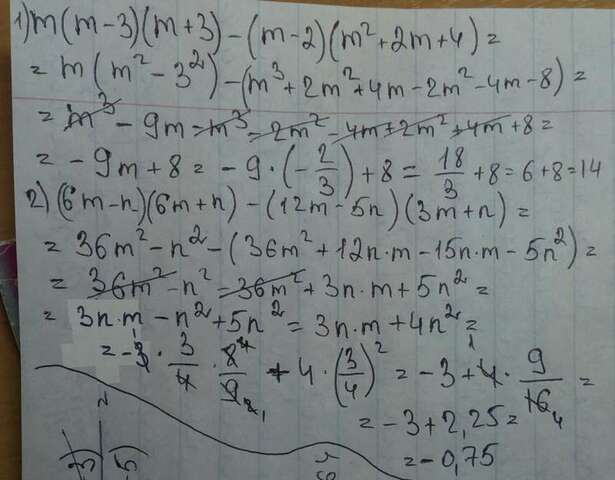 1) m(m-3)(m+3)-(m-2)(m²+2m+4)=
= m(m²-3²)-(m³+2m²+4m-2m²-4m-8)=
= m³-9m-m³-2m²-4m+2m²+4m+8=
= -9m+8= -9·(-2/3)+8= 18/3+8=6+8=14
2) (6m-n)(6m+n)-(12m-5n)(3m+n)=
= 36m²-n²-(36m²+12n·m-15n·m-5n²)=
= 36m²-n²-36m²+3n·m+5n²=
= 3n·m-n²+5n²=3n·m+4n²=
=-3·3/4·8/9+4·(3/4)²=-3+4·9/16=
=-3+2,25=
=-0,75